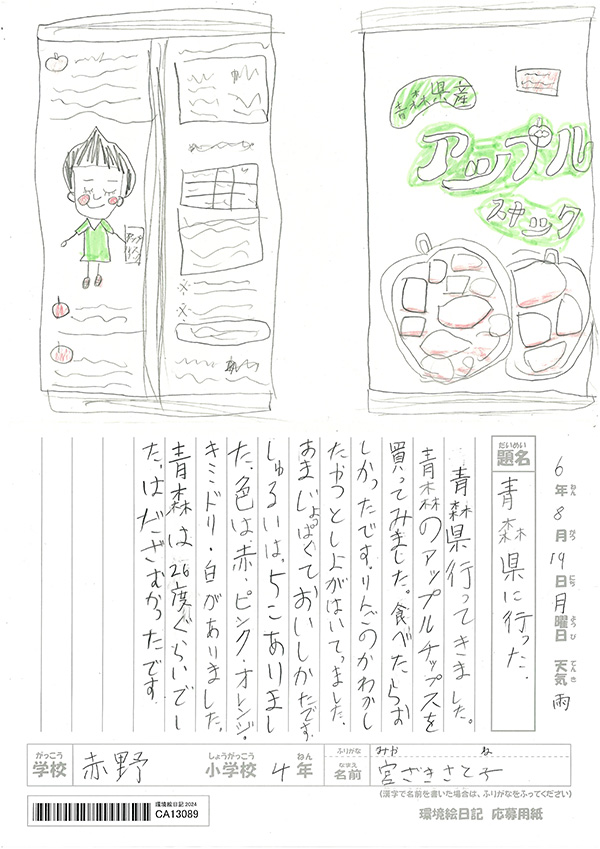 青森県産
アップル
スナック
6年8月19日月曜日 天気 雨
ねん がつ にち ようび てんき
だいめい
題名
青森県に行った.
青森県行ってきました。
青森のアップルチップスを
買ってみました。食べたらお
しかったです。りんごのかわかし
たかつとし上がはいてつました、
あまじょっぱくておいしかたです
しゅるいは、5こありまし
た、色は、赤・ピンク・オレンジ・
キミドリ・白がありました。
青森は26度ぐらいでし
た、はださむかったです
がっこう
学校 赤野
しょうがっこう ねん
小学校 4年
ふりがな みや ね
なまえ
名前 宮ざきさと子
(漢字で名前を書いた場合は、ふりがなをふってください)
環境絵日記2024
CA13089
環境絵日記 応募用紙